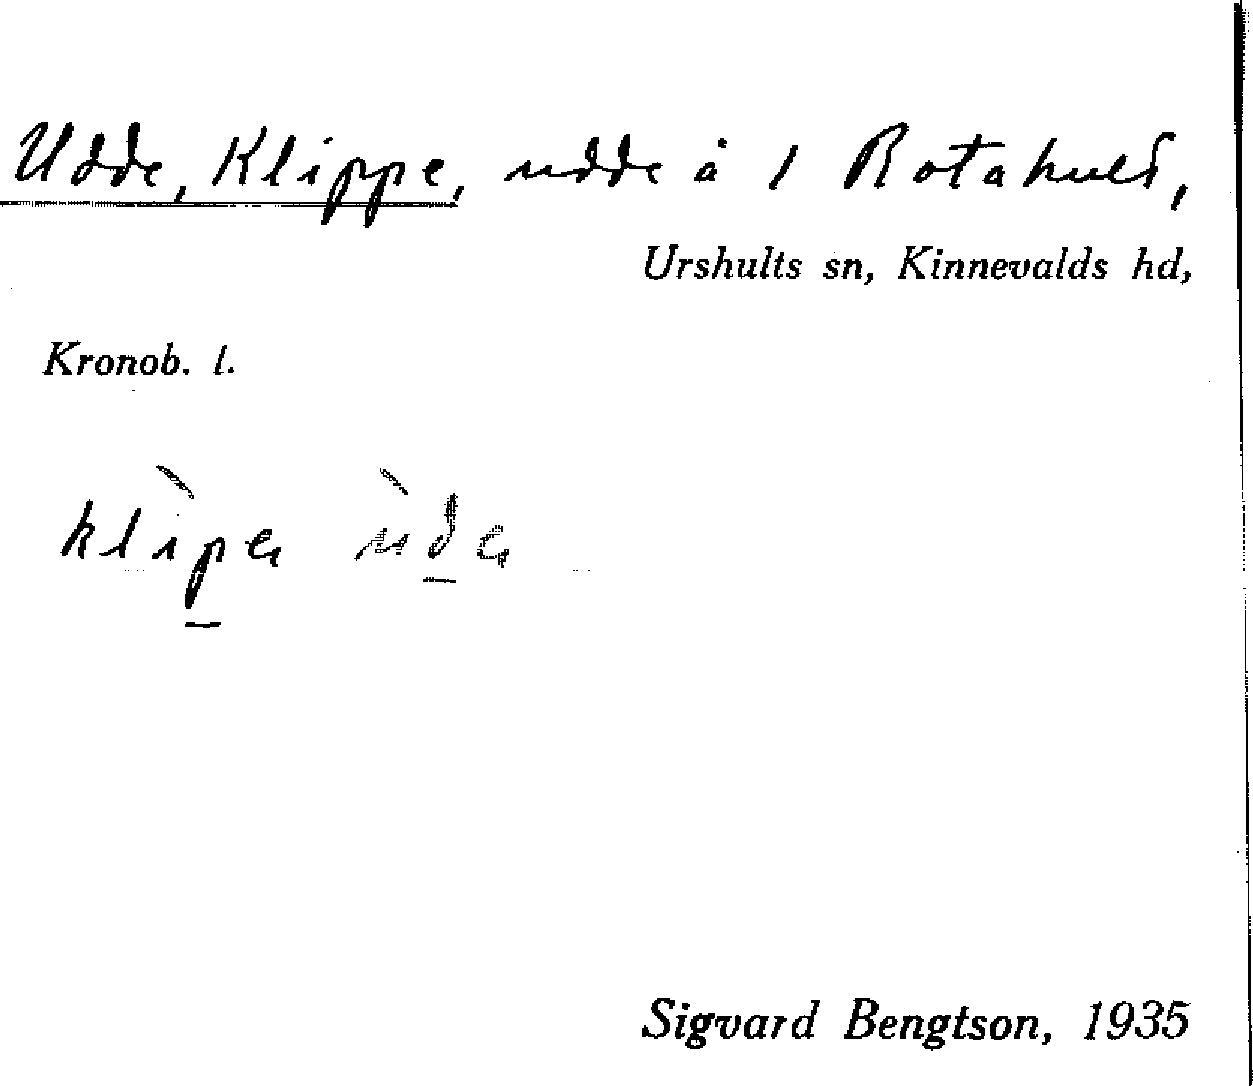 Udde, Klippe, udde å 1 Rotahult,
Urshults sn, Kinnevalds hd,
Kronob. l.
klìpa ùda
Sigvard Bengtson, 1935